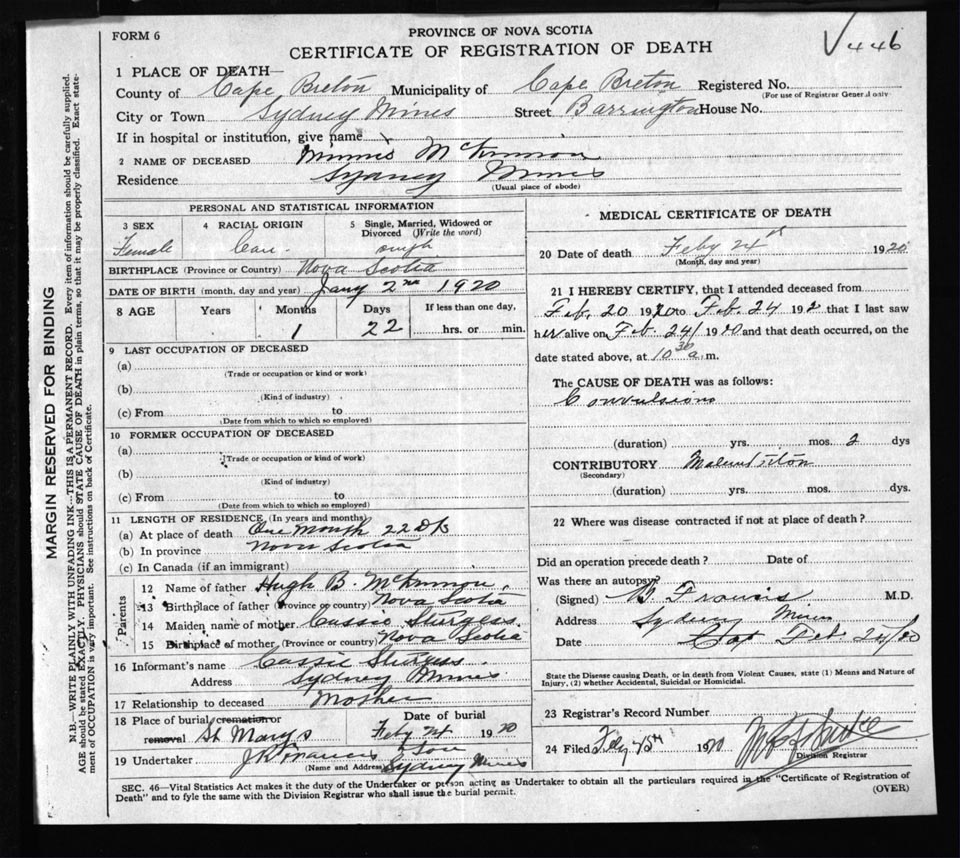 FORM 6
PROVINCE OF NOVA SCOTIA
CERTIFICATE OF REGISTRATION OF DEATH
V446
1 PLACE OF DEATH—
County of Cape Breton Municipality of Cape Breton Registered No.
(For use of Registrar General only
City or Town Sydney Mines Street Barrington House No.
If in hospital or institution, give name
2 NAME OF DECEASED Minnie McKinnon
Residence Sydney Mines
(Usual place of abode)
PERSONAL AND STATISTICAL INFORMATION
3 SEX 4 RACIAL ORIGIN 5 Single, Married, Widowed or
Divorced (Write the word)
Female Cau. singh
BIRTHPLACE (Province or Country) Nova Scotia
DATE OF BIRTH (month, day and year) Jany 2nd 1920
8 AGE Years Months Days If less than one day,
1 22 hrs. or min.
9 LAST OCCUPATION OF DECEASED
(a)
(Trade or occupation or kind or work)
(b)
(Kind of industry)
(c) From to
(Date from which to which so employed)
10 FORMER OCCUPATION OF DECEASED
(a)
(Trade or occupation or kind of work)
(b)
(Kind of industry)
(c) From to
(Date from which to which so employed)
11 LENGTH OF RESIDENCE (In years and months)
(a) At place of death One Month 22 Ds
(b) In province Nova Scotia
(c) In Canada (if an immigrant)
Parents
12 Name of father Hugh B. McKinnon.
13 Birthplace of father (Province or country) Nova Scotia
14 Maiden name of mother Cassie Sturgess.
15 Birthplace of mother (Province or country) Nova Scotia
16 Informant's name Cassie Sturgess.
Address Sydney Mines
17 Relationship to deceased Mother
18 Place of burial cremation or Date of burial
removal St Marys Feby 24 1920
19 Undertaker J Francis & Son
(Name and Address) Sydney Mines
MEDICAL CERTIFICATE OF DEATH
20 Date of death Feby 24th 1920
(Month, day and year)
21 I HEREBY CERTIFY, that I attended deceased from
Feb. 20 1920 to Feb. 24 192 that I last saw
her alive on Feb. 24/ 1920 and that death occurred, on the
date stated above, at 10 30 a.m.
The CAUSE OF DEATH was as follows:
Convulsions
(duration) yrs. mos. 2 dys
CONTRIBUTORY
(Secondary)
(duration) yrs. mos. dys.
22 Where was disease contracted if not at place of death?
Did an operation precede death? Date of
Was there an autopsy?
(Signed) Francis M.D.
Address Sydney Mines
Date Feb 25/20
State the Disease causing Death, or in death from Violent Causes, state (1) Means and Nature of
Injury, (2) whether Accidental, Suicidal or Homicidal.
23 Registrar's Record Number
24 Filed Feby 25th 1920
Division Registrar
SEC. 46—Vital Statistics Act makes it the duty of the Undertaker or person acting as Undertaker to obtain all the particulars required in the "Certificate of Registration of
Death" and to fyle the same with the Division Registrar who shall issue the burial permit.
(OVER)
MARGIN RESERVED FOR BINDING
N.B.—WRITE PLAINLY WITH UNFADING INK—THIS IS A PERMANENT RECORD. Every item of information should be carefully supplied.
AGE should be stated EXACTLY. PHYSICIANS should STATE CAUSE OF DEATH in plain terms, so that it may be properly classified. Exact state-
ment of OCCUPATION is very important. See instructions on back of Certificate.